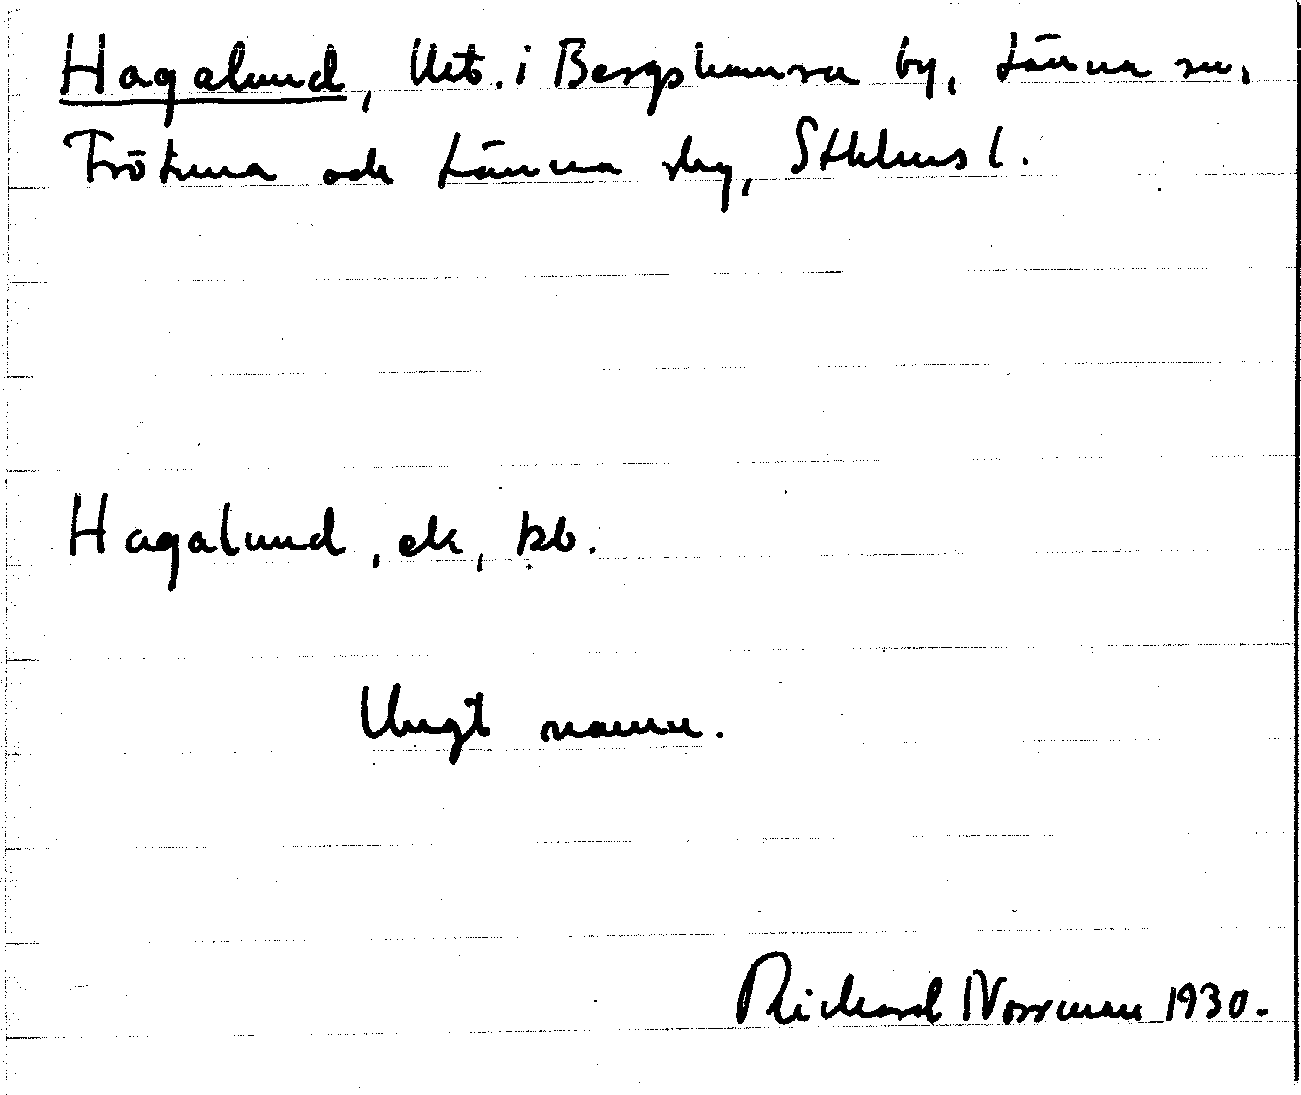 Hagalund, Utt. i Bergshamra by, Länna sn,
Frötuna och Länna skg, Sthlms l.
Hagalund, ek, kb.
Ungt namn.
Richard Norrman 1930.